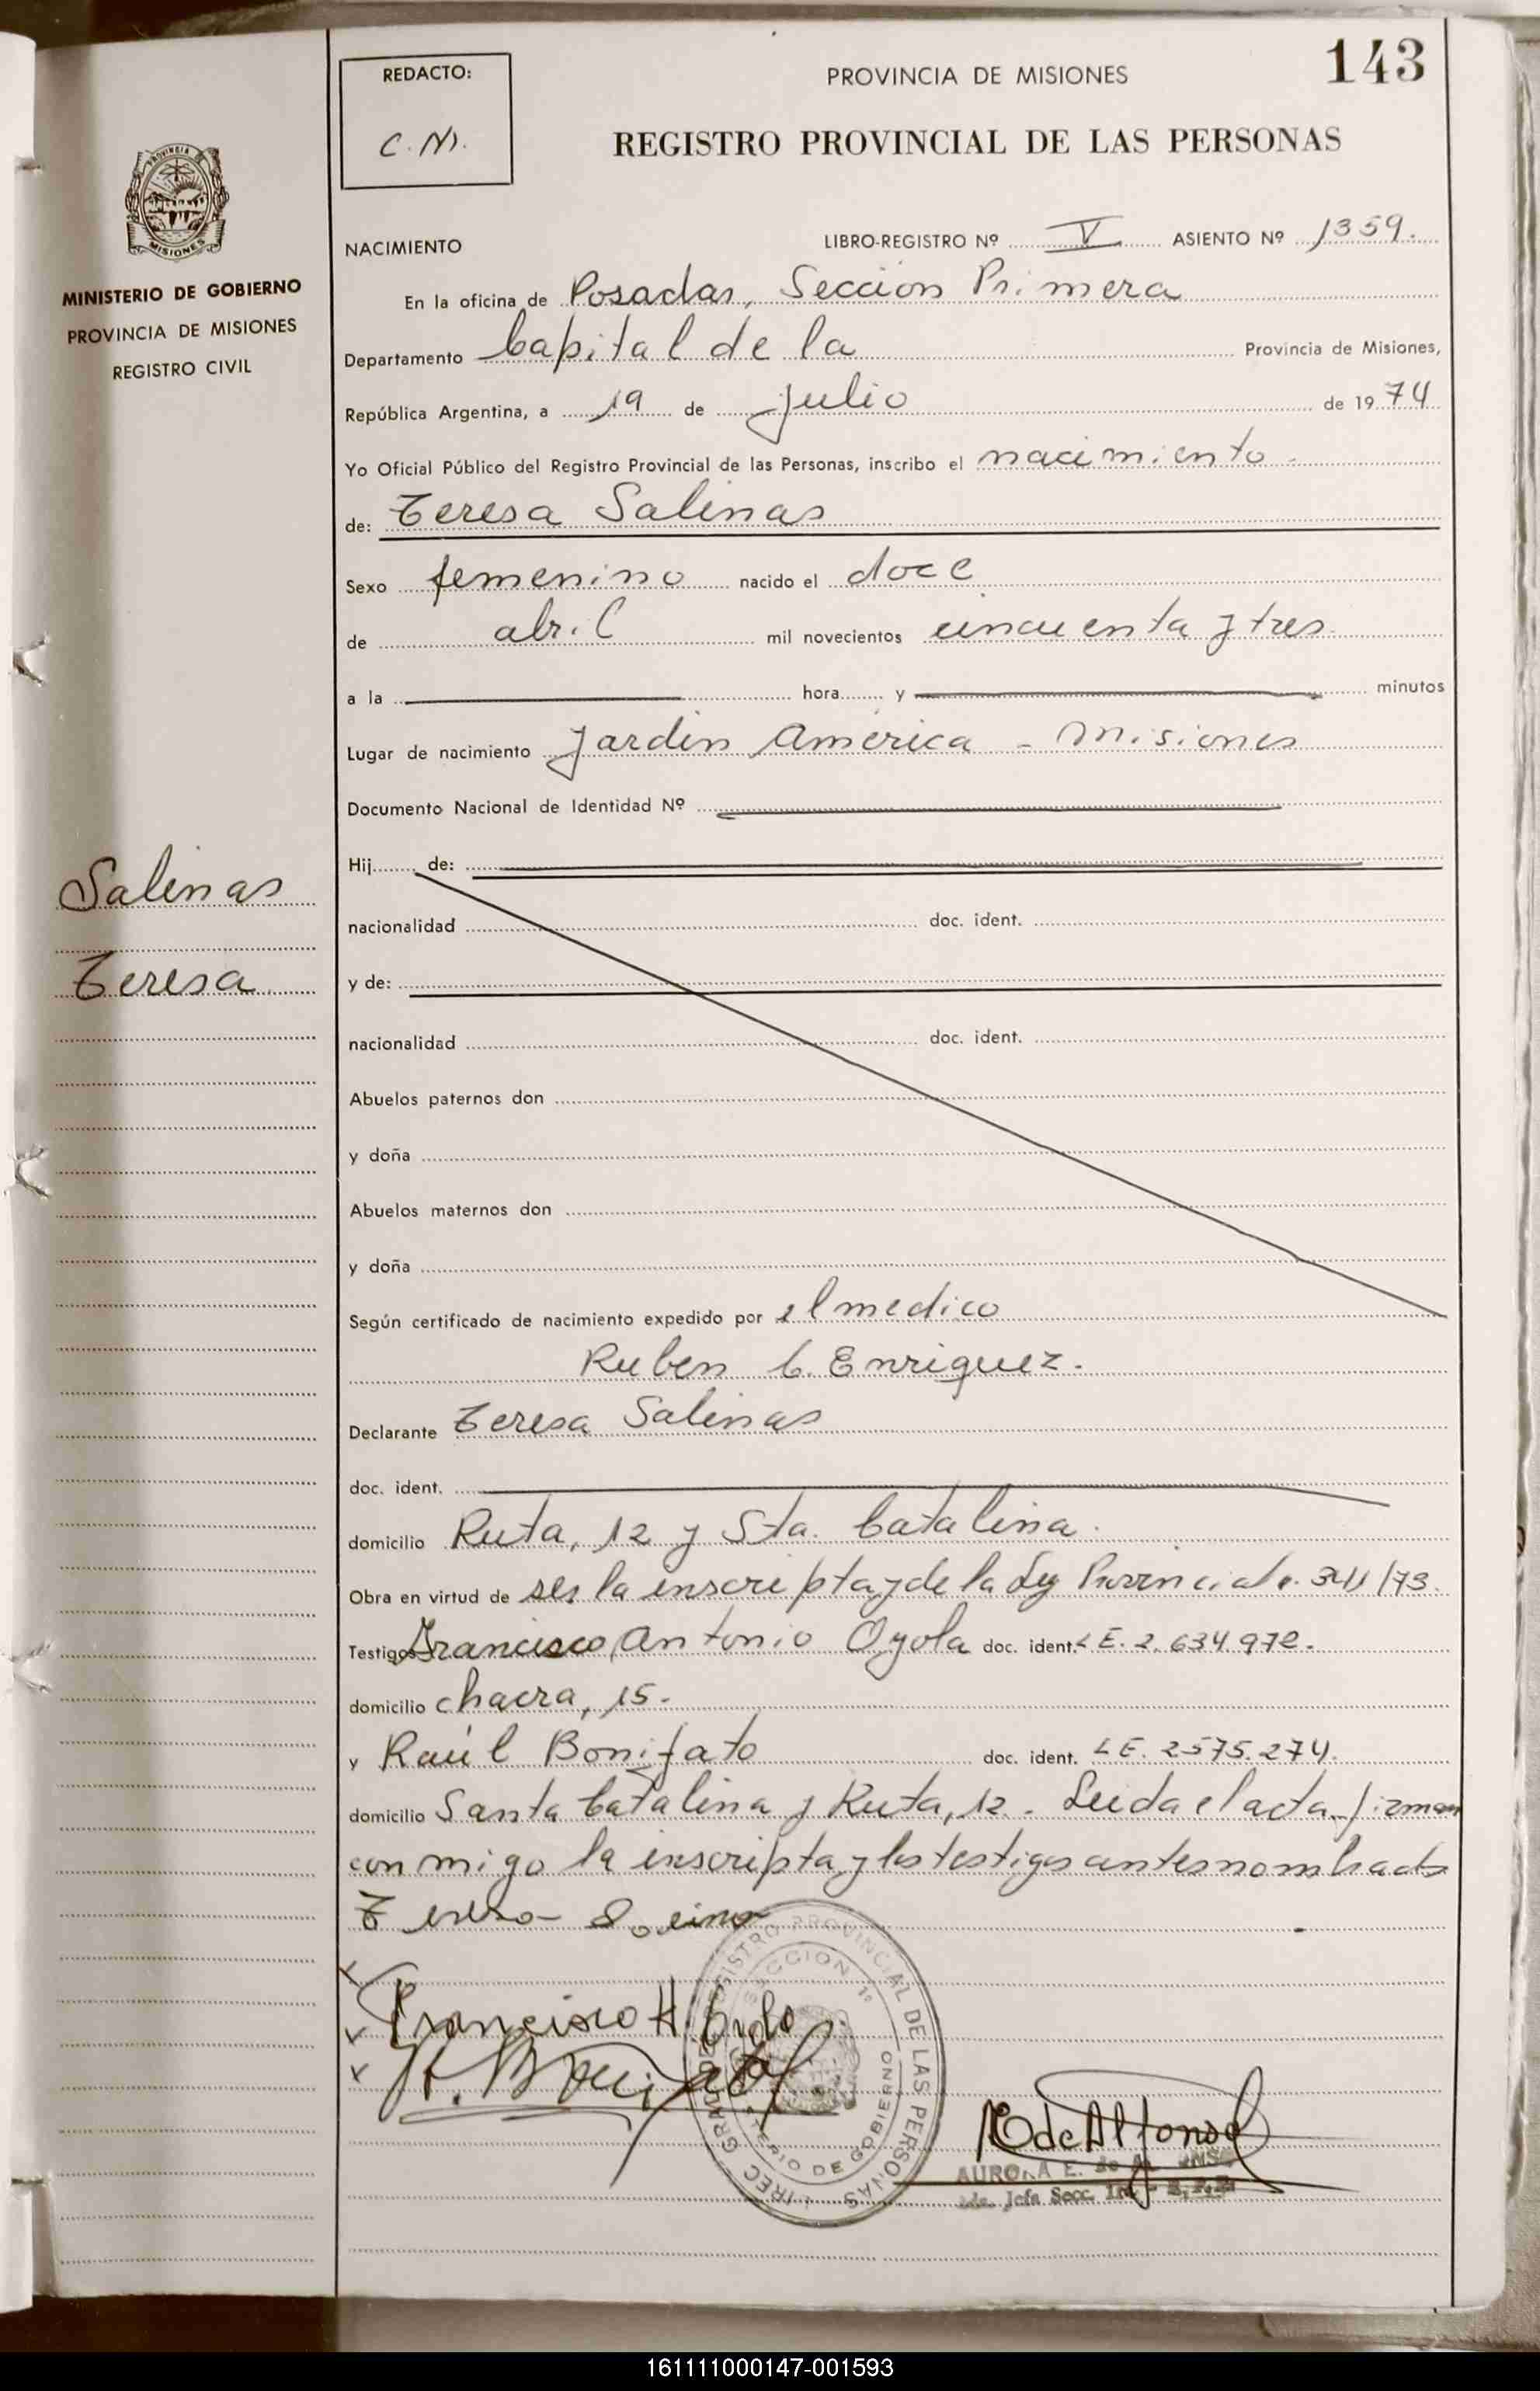 143
REDACTO:
C. M.
PROVINCIA DE MISIONES
REGISTRO PROVINCIAL DE LAS PERSONAS
PROVINCIA DE
MISIONES
MINISTERIO DE GOBIERNO
PROVINCIA DE MISIONES
REGISTRO CIVIL
Salinas
Teresa
NACIMIENTO LIBRO-REGISTRO Nº V ASIENTO Nº 1359.
En la oficina de Posadas, Sección Primera
Departamento Capital de la Provincia de Misiones,
República Argentina, a 19 de Julio de 1974
Yo Oficial Público del Registro Provincial de las Personas, inscribo el nacimiento
de: Teresa Salinas
Sexo femenino nacido el doce
de abril mil novecientos cincuenta y tres
a la hora y minutos
Lugar de nacimiento Jardin America - Misiones
Documento Nacional de Identidad Nº
Hij de:
nacionalidad doc. ident.
y de:
nacionalidad doc. ident.
Abuelos paternos don
y doña
Abuelos maternos don
y doña
Según certificado de nacimiento expedido por el medico
Ruben C. Enriquez.
Declarante Teresa Salinas
doc. ident.
domicilio Ruta, 12 y Sta. Catalina.
Obra en virtud de ser la inscripta y de la Ley Provincial /73.
Testigos Francisco Antonio Oyola doc. ident. LE. 2.634.972.
domicilio chacra, 15.
y Raúl Bonifato doc. ident. LE. 2575.274.
domicilio Santa Catalina y Ruta, 12. Leida el acta, firman
con migo la inscripta y los testigos antes nombrados
Francisco A. Oyola
R. Bonifato
REGISTRO PROVINCIAL DE LAS PERSONAS
SECCION 1º
MINISTERIO DE GOBIERNO
R de Alfonso
AURORA E. de ALFONSO
Jefa Secc.
161111000147-001593